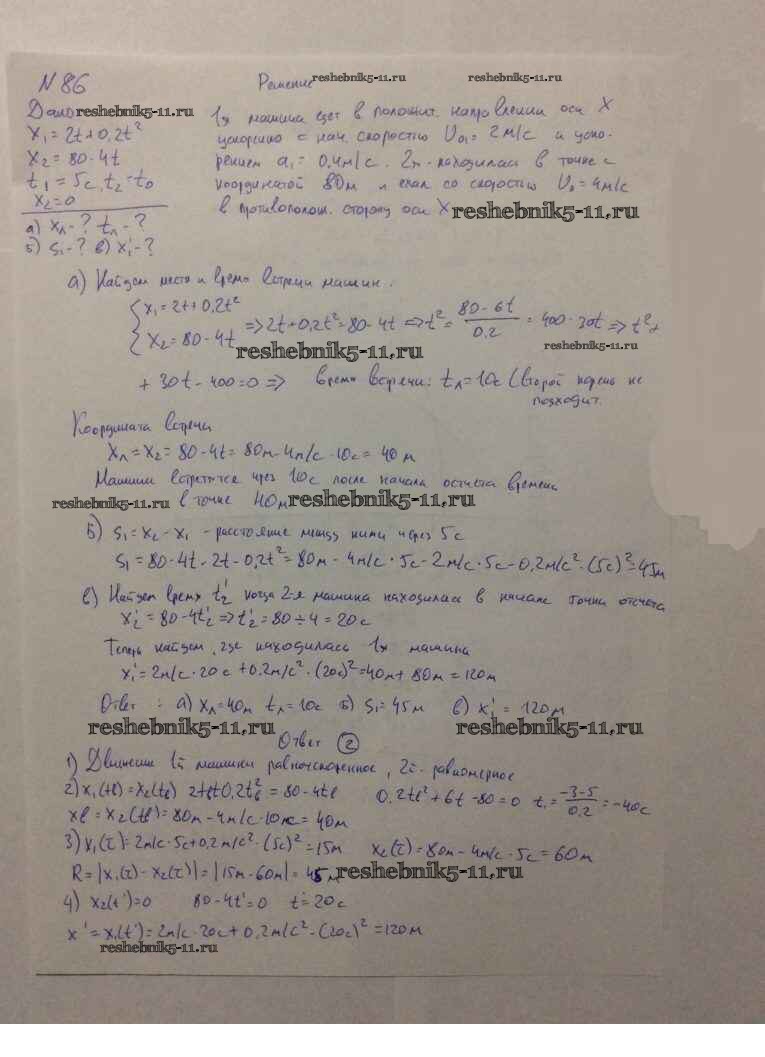 N 86
Решение reshebnik5-11.ru reshebnik5-11.ru
Дано reshebnik5-11.ru 1я машина едет в положит. направлении оси X
x₁ = 2t+0,2t² ускоренно с нач. скоростью U₀₁ = 2 м/с и уско-
x₂ = 80-4t рением a₁ = 0,4м/с. 2я находилась в точке с
t₁ = 5с, t₂ = t₀ координатой 80м и ехал со скоростью U₂ = 4м/с
x₂=0 в противополож. сторону оси X reshebnik5-11.ru
а) xл - ? tл - ?
б) S₁ - ? в) x₁' - ?
а) Найдем место и время встречи машин.
x₁ = 2t+0,2t²
x₂ = 80-4t => 2t+0,2t² = 80-4t => t² = (80-6t)/0.2 = 400-30t => t² +
reshebnik5-11.ru reshebnik5-11.ru
+ 30t - 400=0 => время встречи: tл = 10с (второй корень не
подходит.
Координата встречи
xл = x₂ = 80-4t = 80м-4м/с · 10с = 40 м
Машины встретятся через 10с после начала отсчета времени
reshebnik5-11.ru в точке 40м reshebnik5-11.ru
Б) S₁ = x₂ - x₁ - расстояние между ними через 5с
S₁ = 80-4t-2t-0,2t² = 80м - 4м/с · 5с - 2м/с · 5с - 0,2м/с² · (5с)² = 45м
в) Найдем время t₂' когда 2-я машина находилась в начале точки отсчета
x₂' = 80-4t₂' => t₂' = 80÷4 = 20с
Теперь найдем, где находилась 1я машина
x₁' = 2м/с · 20с + 0.2м/с² · (20с)² = 40м + 80м = 120м
Ответ : а) xл = 40м tл = 10с б) S₁ = 45м в) x₁' = 120м
reshebnik5-11.ru reshebnik5-11.ru
Ответ 2
1) Движение 1й машины равноускоренное, 2й - равномерное
2) x₁(tв) = x₂(tв) 2tв+0,2tв² = 80-4tв 0.2tв²+6t-80=0 t₁ = (-3-5)/0.2 = -40с
xв = x₂(tв) = 80м-4м/с·10с = 40м
3) x₁(τ) = 2м/с·5с+0,2м/с²·(5с)² = 15м x₂(τ) = 80м-4м/с·5с = 60м
R = |x₁(τ) - x₂(τ)| = |15м-60м| = 45м reshebnik5-11.ru
4) x₂(t')=0 80-4t'=0 t'=20с
x' = x₁(t') = 2м/с·20с+0,2м/с²·(20с)² = 120м
reshebnik5-11.ru